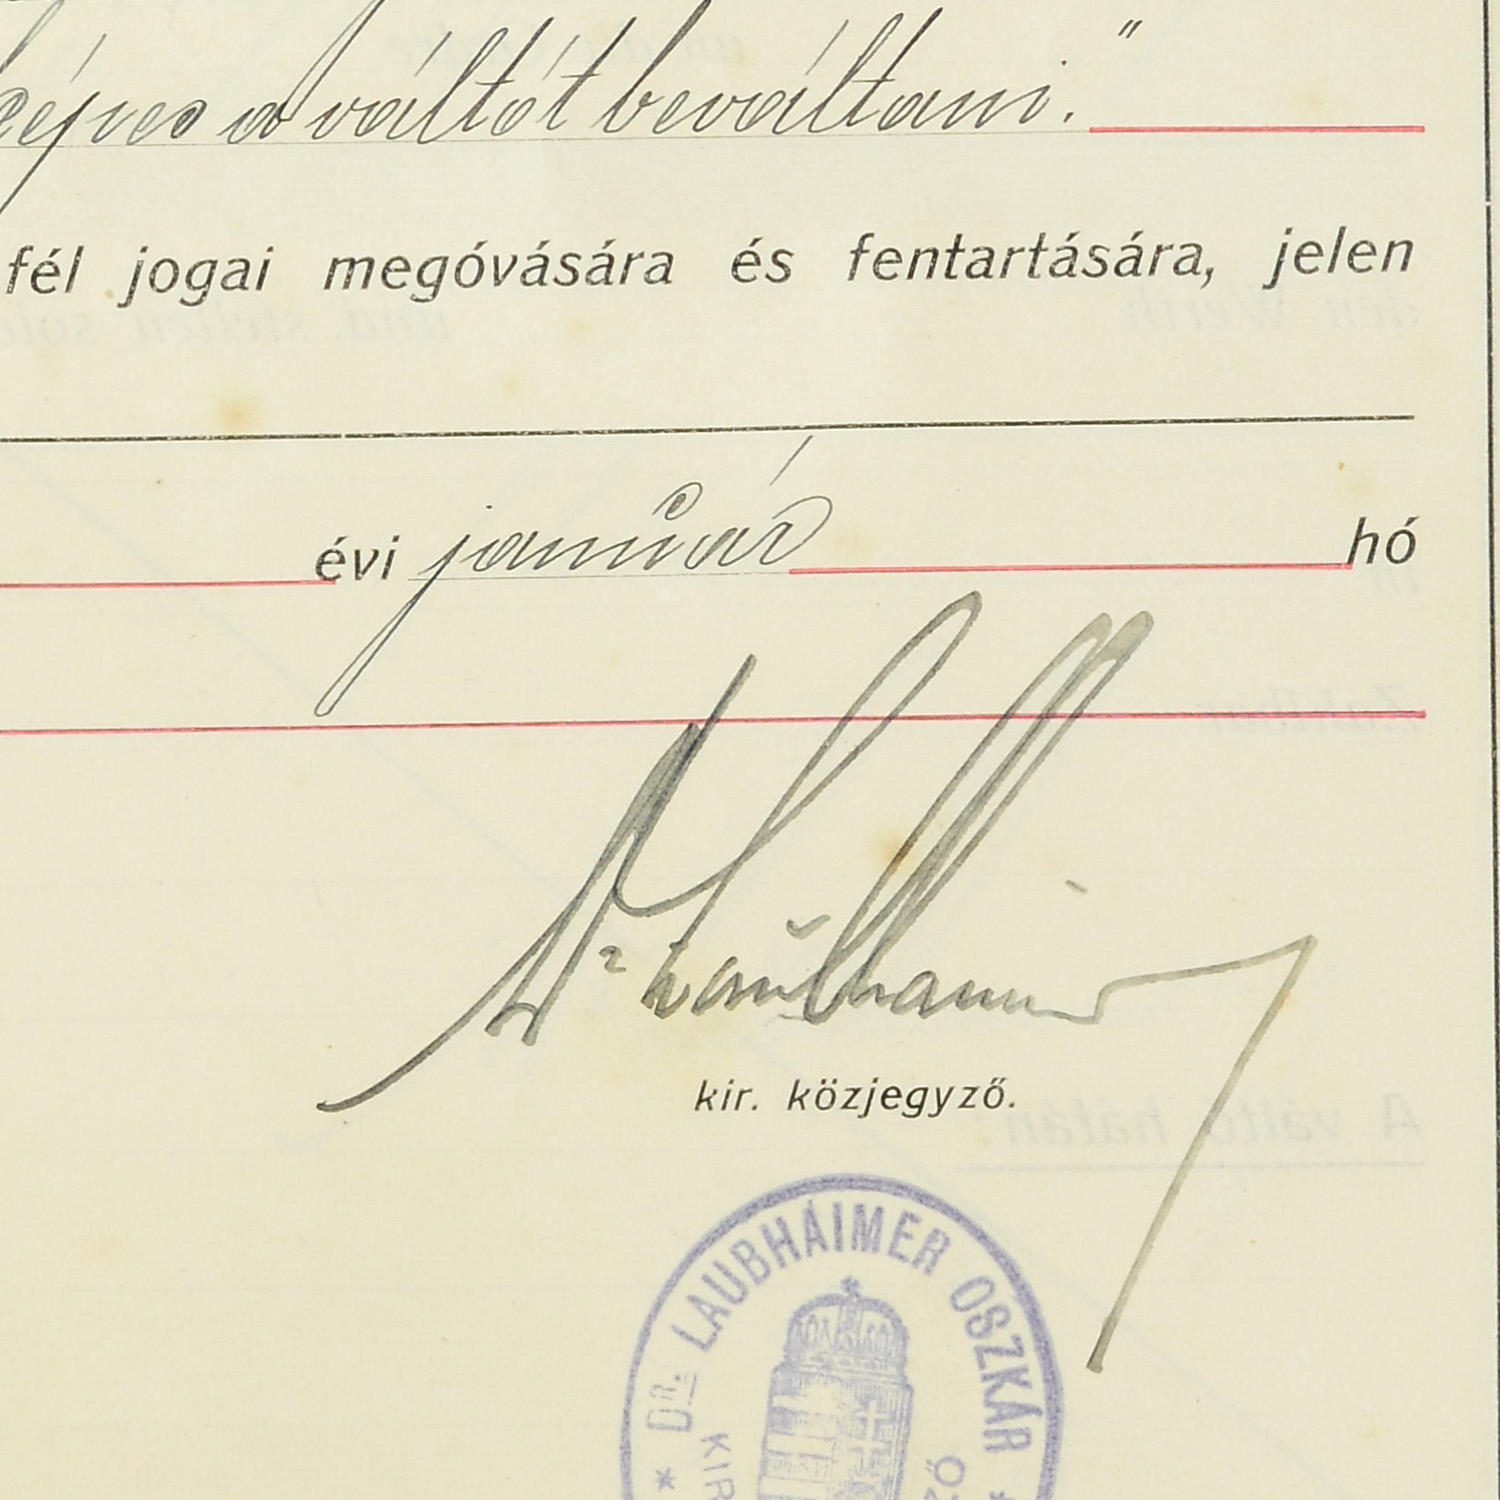 képes a váltót beváltani."
fél jogai megóvására és fentartására, jelen
évi január hó
Dr Laubhaimer
kir. közjegyző.
* DR. LAUBHÁIMER OSZKÁR *
KIR